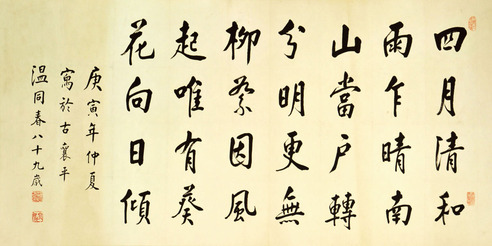 四月清和
雨乍晴南
山當户轉
分明更無
柳絮因風
起唯有葵
花向日傾
庚寅年仲夏
寫於古襄平
温同春八十九歲